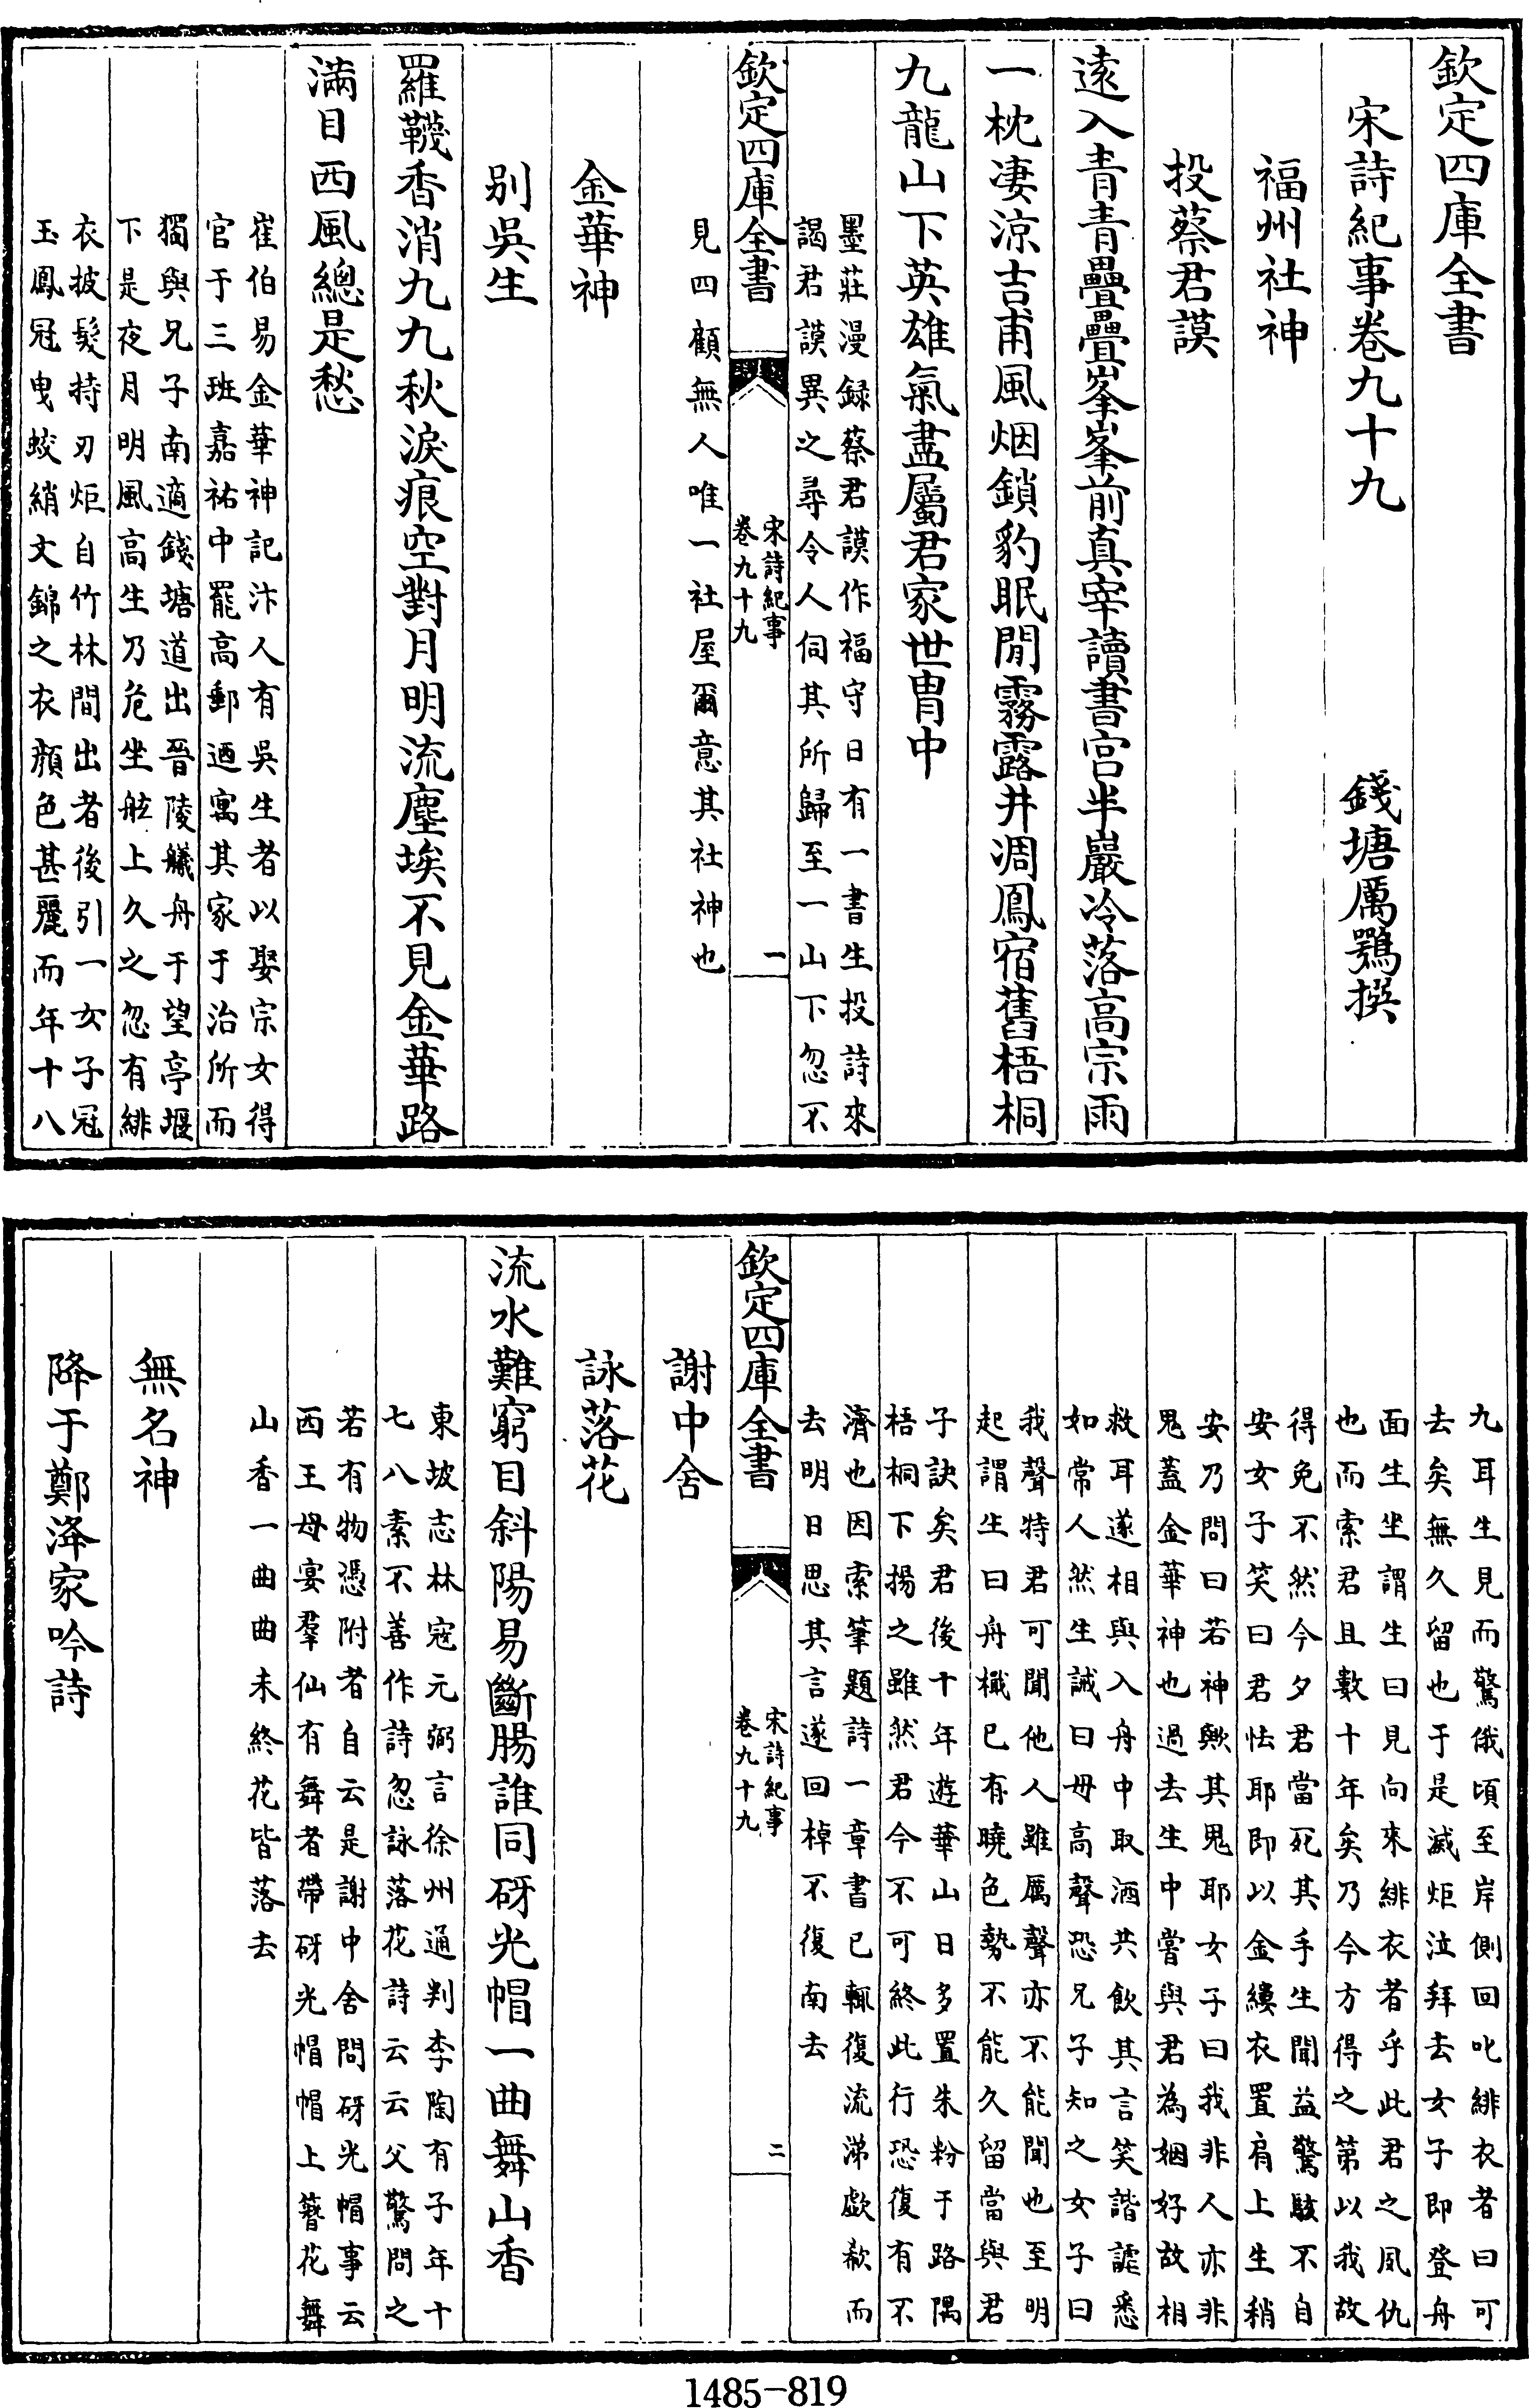 欽定四庫全書
宋詩紀事卷九十九
錢塘厲鶚撰
福州社神
投蔡君謨
遠入青青疊疊峯峯前真宰讀書宫半巖冷落高宗雨
一枕凄涼吉甫風烟鎖豹眠閒霧露井凋鳳宿舊梧桐
九龍山下英雄氣盡屬君家世胄中
墨莊漫録蔡君謨作福守日有一書生投詩來
謁君謨異之尋令人伺其所歸至一山下忽不
欽定四庫全書
宋詩紀事
卷九十九
一
見四顧無人唯一社屋爾意其社神也
金華神
别吳生
羅韈香消九九秋淚痕空對月明流塵埃不見金華路
滿目西風總是愁
崔伯易金華神記汴人有吳生者以娶宗女得
官于三班嘉祐中罷高郵廼寓其家于治所而
獨與兄子南適錢塘道出晉陵艤舟于望亭堰
下是夜月明風高生乃危坐舷上久之忽有緋
衣披髮持刃炬自竹林間出者後引一女子冠
玉鳳冠曳蛟綃文錦之衣顔色甚麗而年十八
九耳生見而驚俄頃至岸側回叱緋衣者曰可
去矣無久留也于是滅炬泣拜去女子即登舟
面生坐謂生曰見向來緋衣者乎此君之夙仇
也而索君且數十年矣乃今方得之第以我故
得免不然今夕君當死其手生聞益驚駭不自
安女子笑曰君怯耶即以金縷衣置肩上生稍
安乃問曰若神歟其鬼耶女子曰我非人亦非
鬼蓋金華神也過去生中嘗與君為姻好故相
救耳遂相與入舟中取酒共飲其言笑諧謔悉
如常人然生誡曰毋高聲恐兄子知之女子曰
我聲特君可聞他人雖厲聲亦不能聞也至明
起謂生曰舟檥已有曉色勢不能久留當與君
子訣矣君後十年遊華山日多置朱粉于路隅
梧桐下揚之雖然君今不可終此行恐復有不
濟也因索筆題詩一章書已輒復流涕歔欷而
去明日思其言遂回棹不復南去
欽定四庫全書
宋詩紀事
卷九十九
二
謝中舍
詠落花
流水難窮目斜陽易斷腸誰同砑光帽一曲舞山香
東坡志林寇元弼言徐州通判李陶有子年十
七八素不善作詩忽詠落花詩云云父驚問之
若有物憑附者自云是謝中舍問砑光帽事云
西王母宴羣仙有舞者帶砑光帽帽上簪花舞
山香一曲曲未終花皆落去
無名神
降于鄭浲家吟詩
1485-819